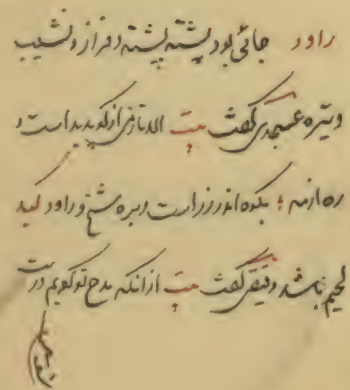 راود جائی بود پشته پشته و فراز و نشیب
و تیره عسجدی گفت بیت الا تا زمی از کوه پدید است و
ره از مه بکوه اندر زراست و بره شخ و راود
لحیم باشد دقیقی گفت بیت از آنکه مدح تو گویم درست